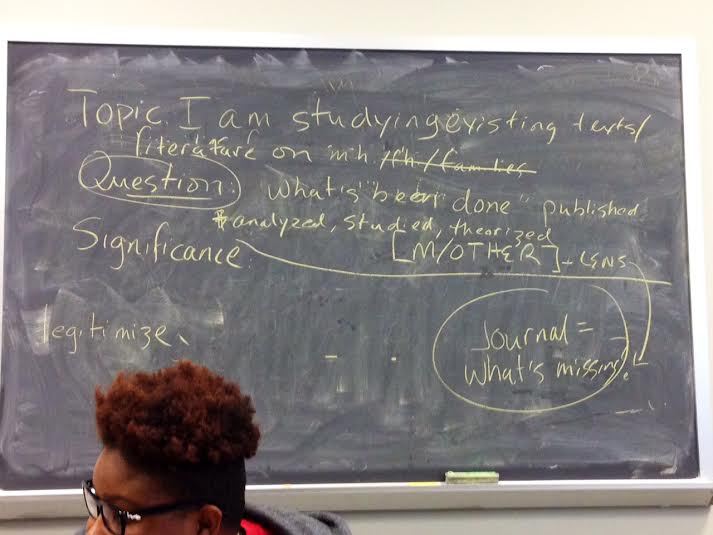 Topic. I am studying existing texts/
literature on mh fh/families
Question: What's been done" published
& analyzed, studied, theorized
Significance: [M/OTHER] - LENS
legitimize
Journal =
What's missing?